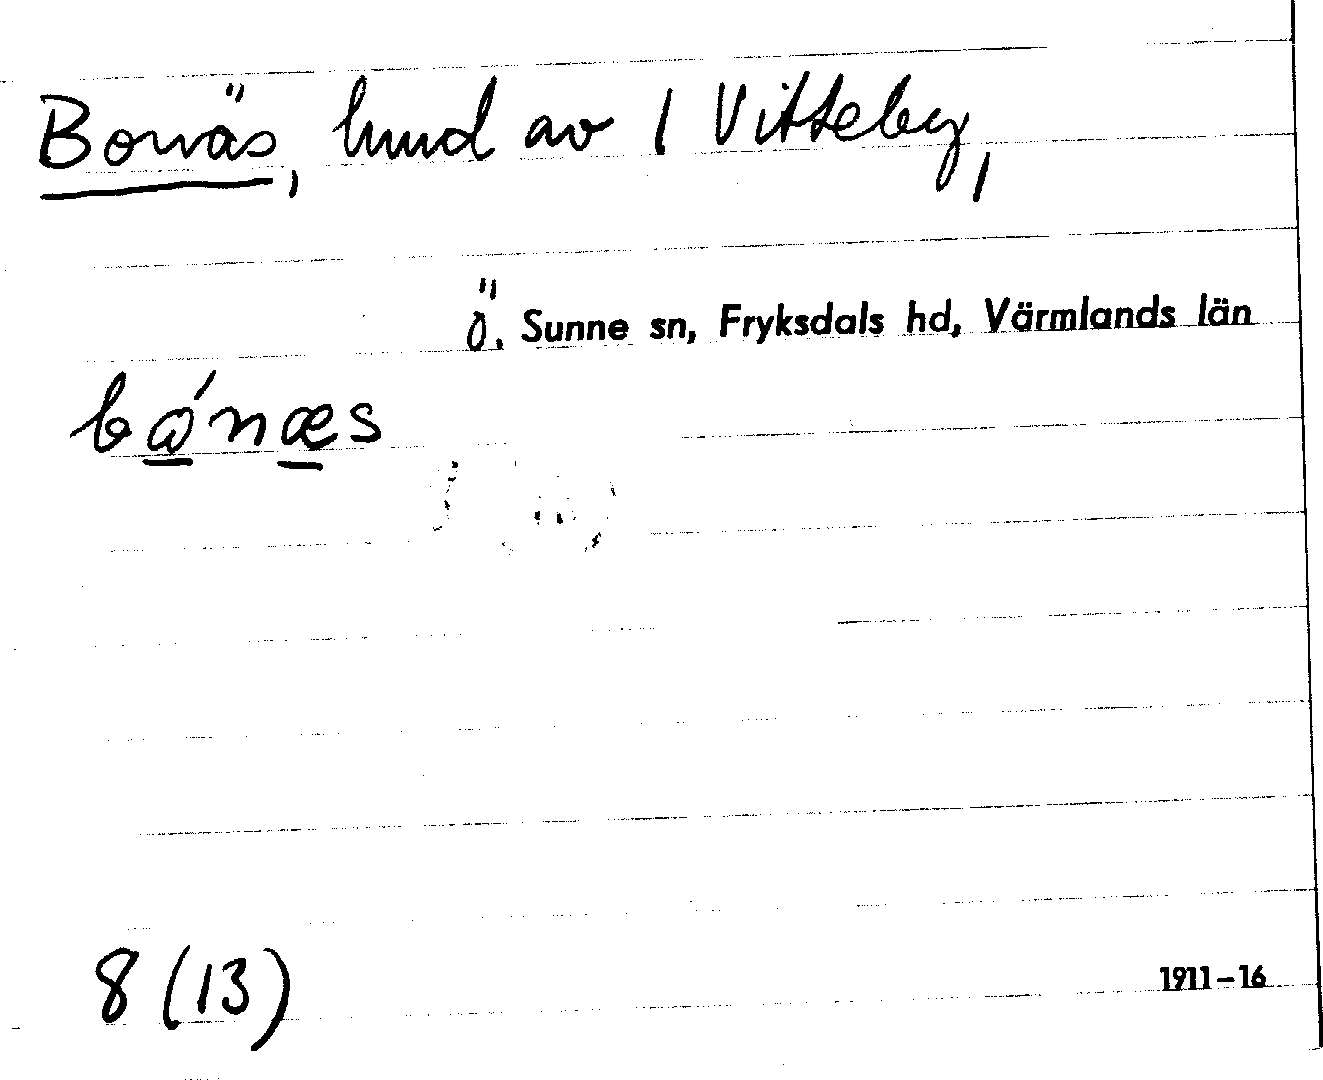 Bonäs, hmd av 1 Vitteby,
Ö. Sunne sn, Fryksdals hd, Värmlands län
bǻnæs
8 (13)
1911–16